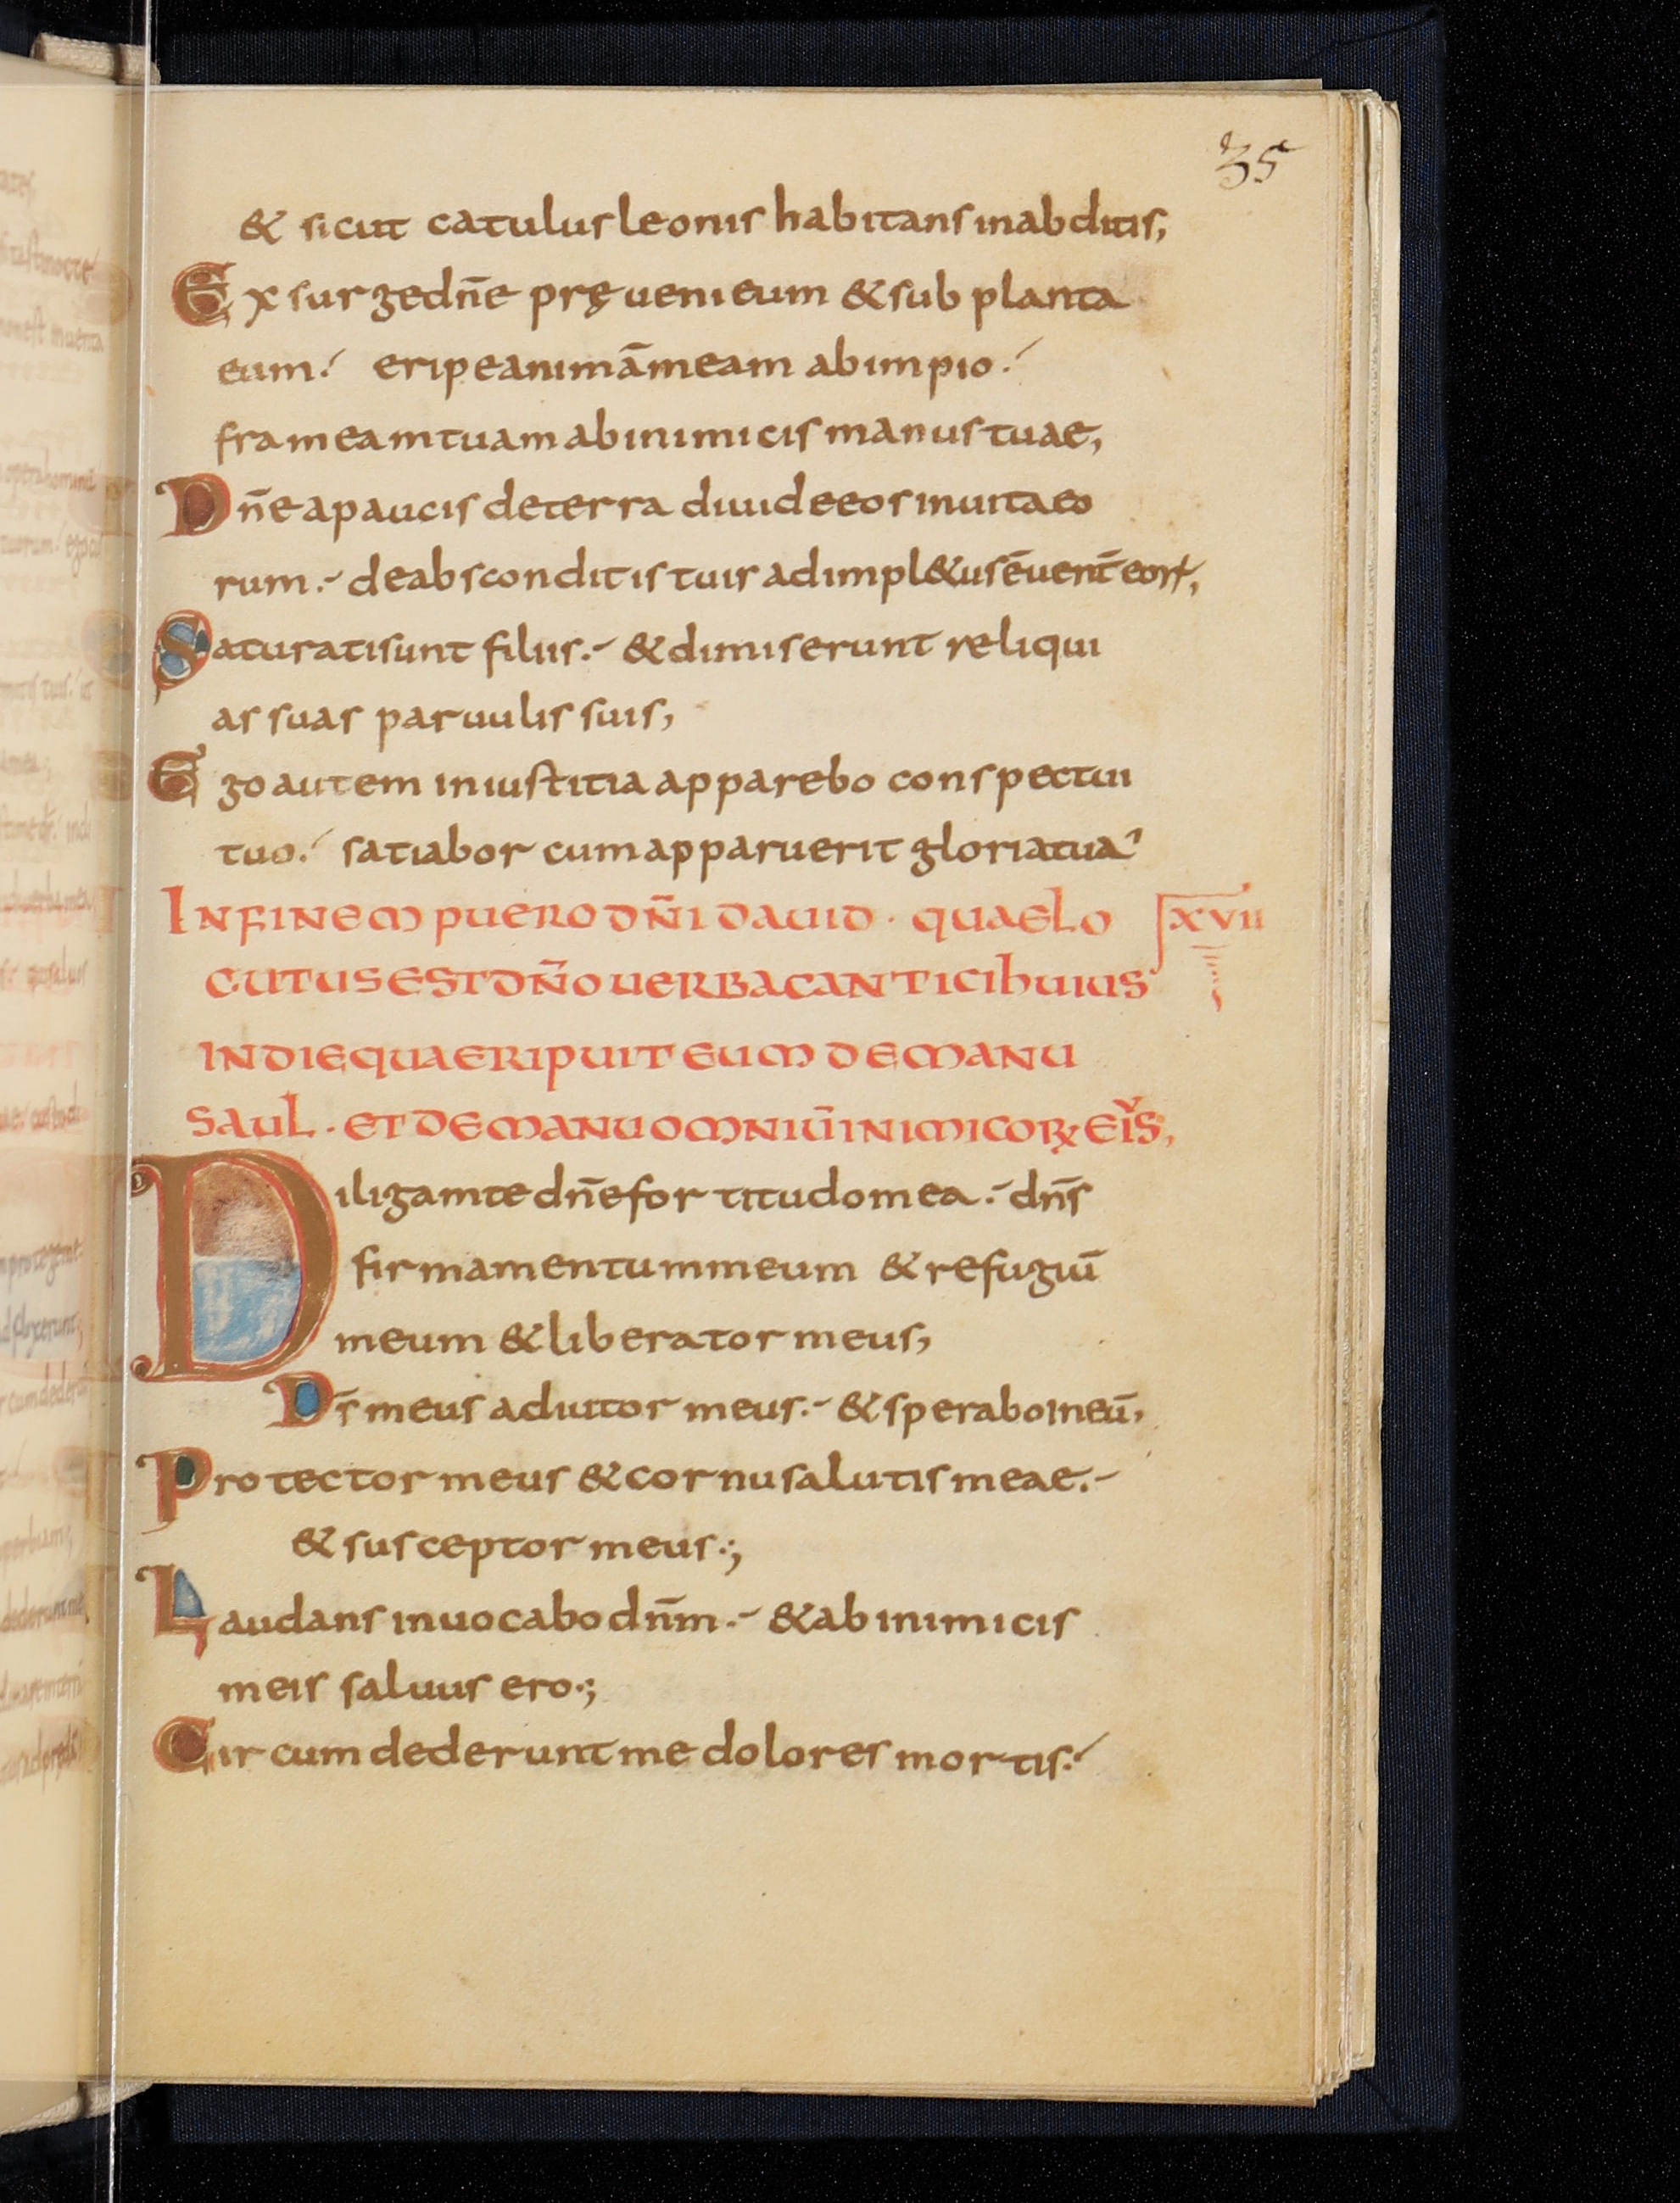 35
& sicut catulus leonis habitans in abditis,
Exsurge dn̄e pręueni eum & subplanta
eum: eripe animā meam ab impio:
frameam tuam ab inimicis manus tuae,
Dn̄e a paucis de terra diuide eos in uita eo
rum: de absconditis tuis adimpl&us ē uent̄ eoꝝ,
Saturati sunt filiis: & dimiserunt reliqui
as suas paruulis suis,
Ego autem in iustitia apparebo conspectui
tuo: satiabor cum apparuerit gloria tua
IN FINEM PUERO DN̄I DAUID · QUAE LO XVII
CUTUS EST DN̄O UERBA CANTICI HUIUS
IN DIE QUA ERIPUIT EUM DE MANU
SAUL · ET DE MANU OMNIŪ INIMICOꝝ EIS,
Diligam te dn̄e fortitudo mea: dn̄s
firmamentum meum & refugiū
meum & liberator meus,
Ds̄ meus adiutor meus: & sperabo in eū,
Protector meus & cornu salutis meae:
& susceptor meus:,
Laudans inuocabo dn̄m: & ab inimicis
meis saluus ero:,
Circumdederunt me dolores mortis: